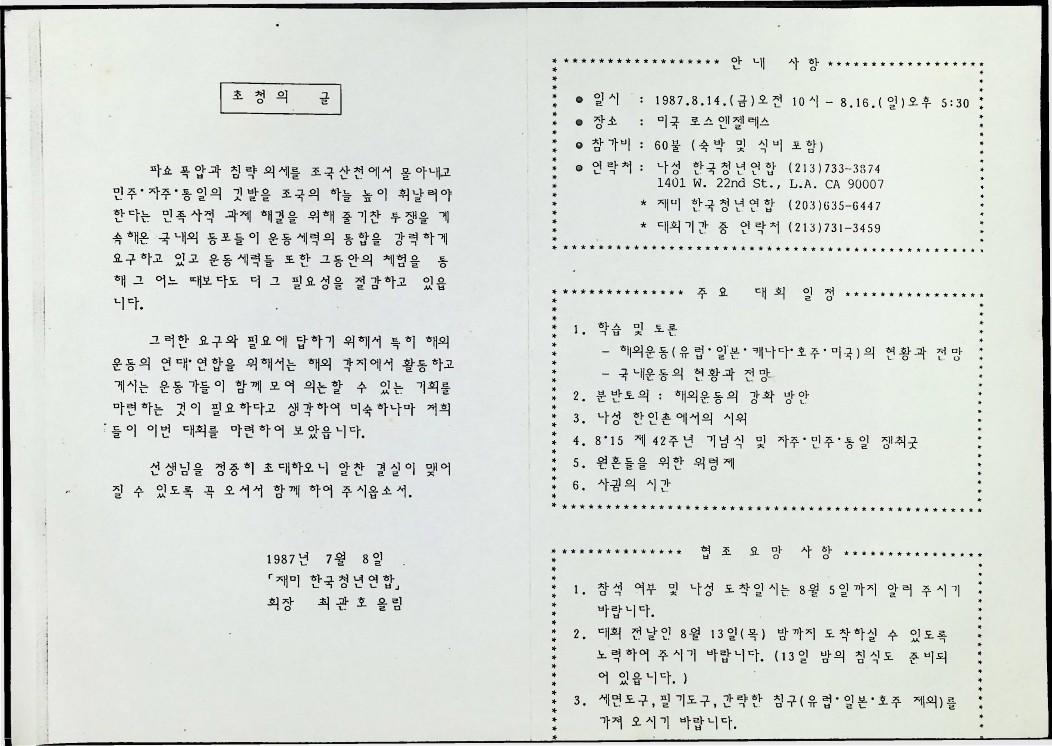 초청의 글
파쇼 폭압과 침략 외세를 조국산천에서 몰아내고
민주·자주·통일의 깃발을 조국의 하늘 높이 휘날려야
한다는 민족사적 과제 해결을 위해 줄기찬 투쟁을 계
속해온 국내외 동포들이 운동세력의 통합을 강력하게
요구하고 있고 운동세력들 또한 그동안의 체험을 통
해 그 어느 때보다도 더 그 필요성을 절감하고 있읍
니다.
그러한 요구와 필요에 답하기 위해서 특히 해외
운동의 연대·연합을 위해서는 해외 각지에서 활동하고
계시는 운동가들이 함께 모여 의논할 수 있는 기회를
마련하는 것이 필요하다고 생각하여 미숙하나마 저희
들이 이번 대회를 마련하여 보았읍니다.
선생님을 정중히 초대하오니 알찬 결실이 맺어
질 수 있도록 꼭 오셔서 함께 하여 주시옵소서.
1987년 7월 8일
「재미 한국청년연합」
회장 최관호 올림
****************** 안내 사항 ******************
● 일시 : 1987.8.14.(금)오전 10시 - 8.16.(일)오후 5:30
● 장소 : 미국 로스엔젤레스
● 참가비 : 60불 (숙박 및 식비 포함)
● 연락처 : 나성 한국청년연합 (213)733-3874
1401 W. 22nd St., L.A. CA 90007
* 재미 한국청년연합 (203)635-6447
* 대회기간 중 연락처 (213)731-3459
************** 주요 대회 일정 ****************
1. 학습 및 토론
- 해외운동(유럽·일본·캐나다·호주·미국)의 현황과 전망
- 국내운동의 현황과 전망
2. 분반토의 : 해외운동의 강화 방안
3. 나성 한인촌에서의 시위
4. 8·15 제 42주년 기념식 및 자주·민주·통일 쟁취굿
5. 원혼들을 위한 위령제
6. 사귐의 시간
*************** 협조 요망 사항 ****************
1. 참석 여부 및 나성 도착일시는 8월 5일까지 알려 주시기
바랍니다.
2. 대회 전날인 8월 13일(목) 밤까지 도착하실 수 있도록
노력하여 주시기 바랍니다. (13일 밤의 침식도 준비되
어 있읍니다.)
3. 세면도구,필기도구,간략한 침구(유럽·일본·호주 제외)를
가져 오시기 바랍니다.